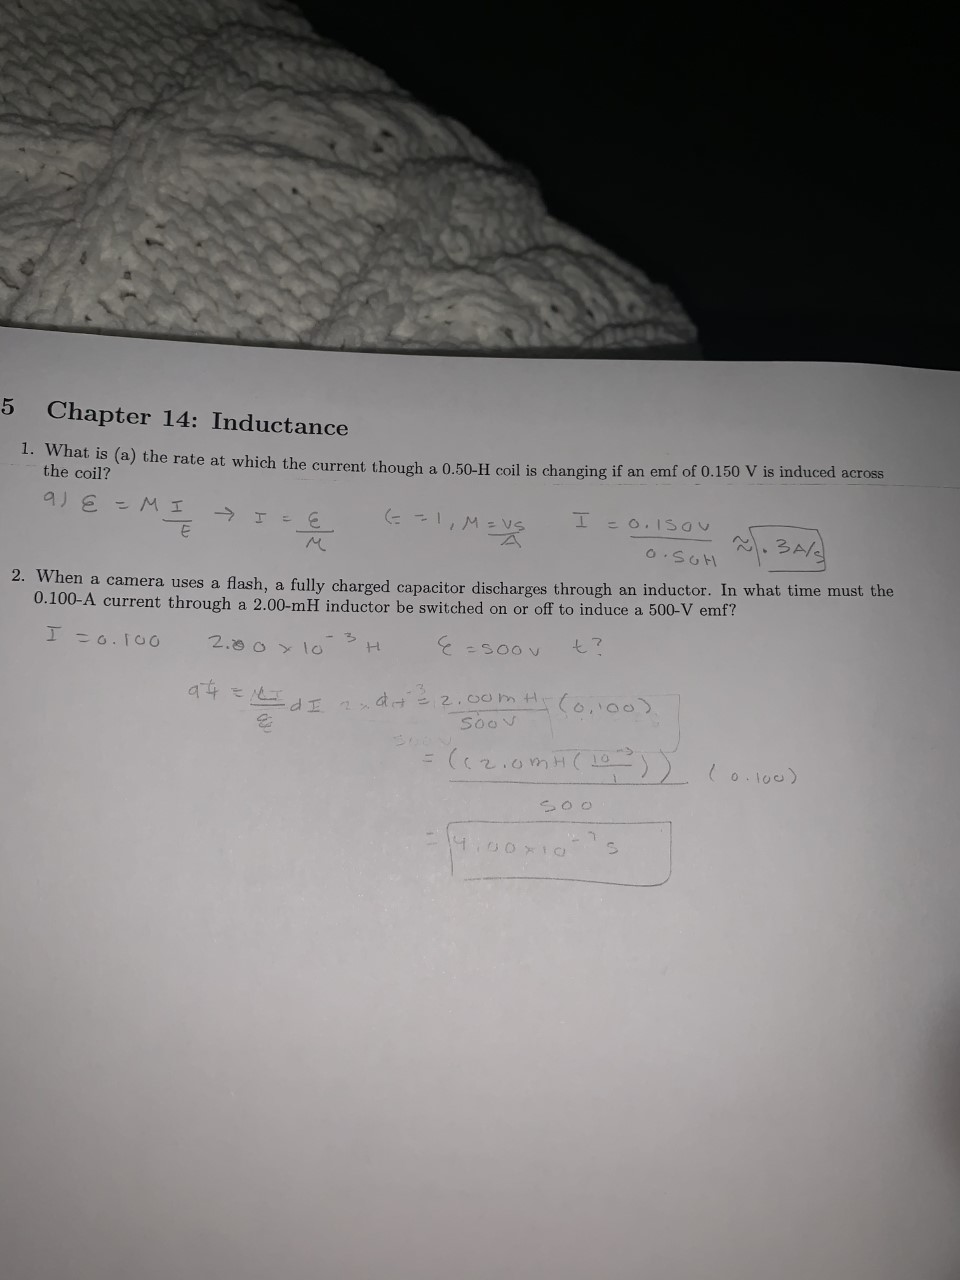 5 Chapter 14: Inductance
1. What is (a) the rate at which the current though a 0.50-H coil is changing if an emf of 0.150 V is induced across
the coil?
a) ε = M I/E → I = ε/M t = 1, M = VS/A I = 0.150V/0.50H ≈ .3A/s
2. When a camera uses a flash, a fully charged capacitor discharges through an inductor. In what time must the
0.100-A current through a 2.00-mH inductor be switched on or off to induce a 500-V emf?
I = 0.100 2.00 x 10⁻³ H ε = 500v t?
dI = 2.00mH/500V (0.100)
= ((2.0mH(10⁻³/1))/500 (0.100)
= 4.00x10⁻⁷ s